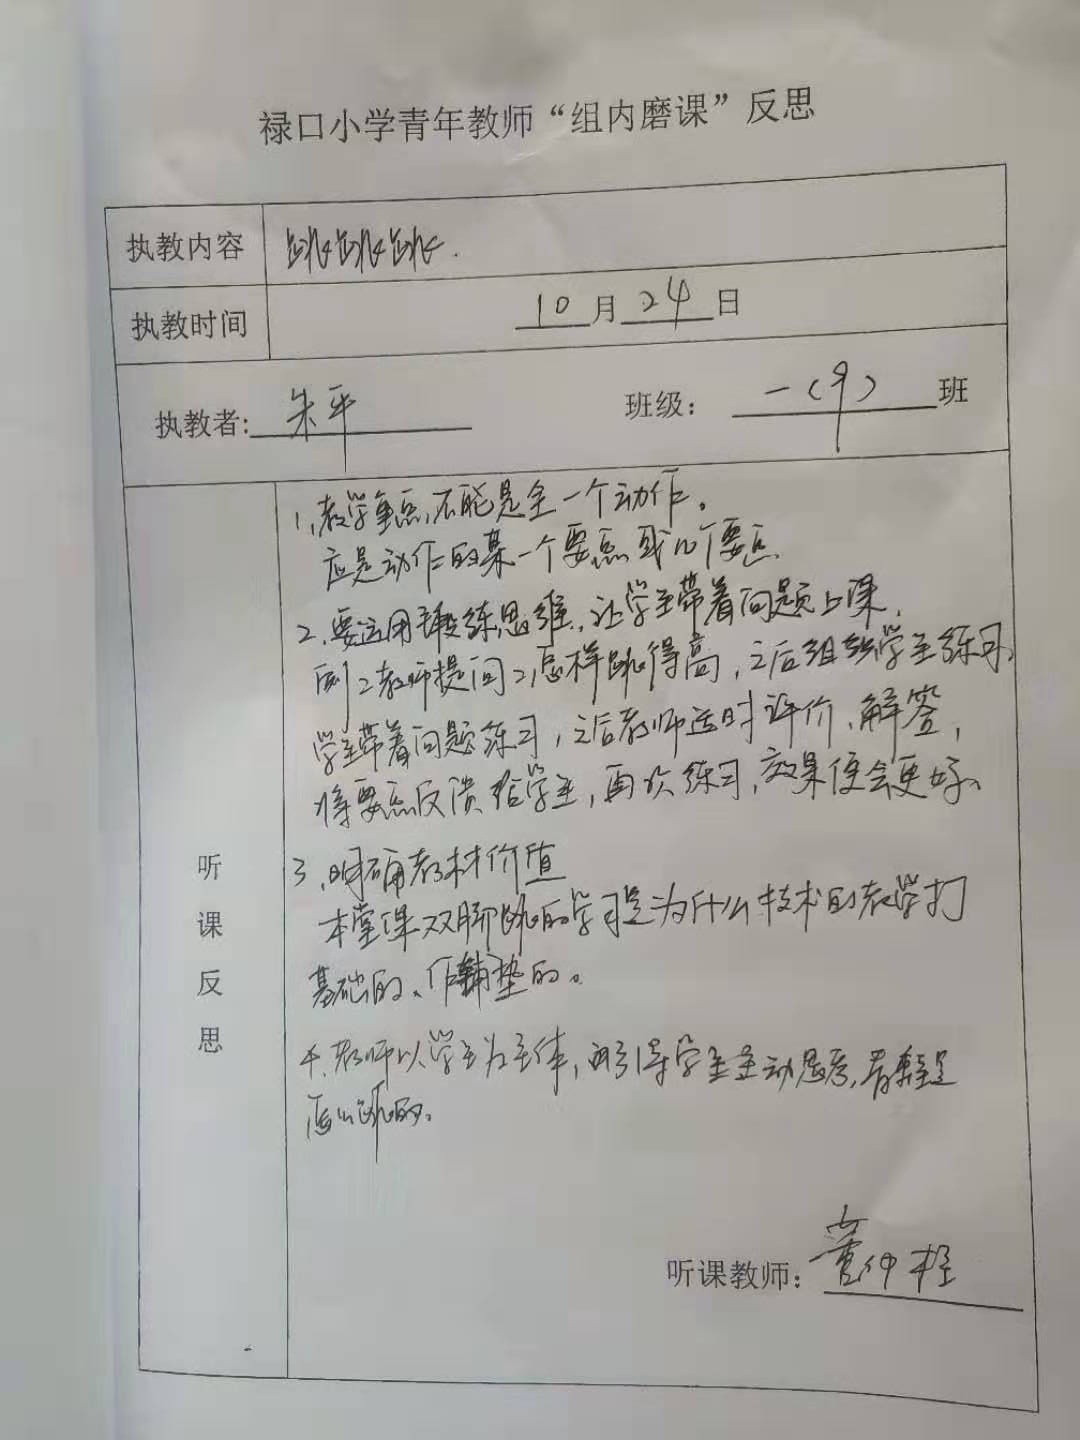 禄口小学青年教师“组内磨课”反思
执教内容 跳跳跳.
执教时间 10月24日
执教者: 朱平 班级: 一(9)班
听课反思
1、教学重点,不能是全一个动作。
应是动作的某一个要点或几个要点
2、要运用锻练思维,让学生带着问题上课,
例:教师提问:怎样跳得高,之后组织学生练习,
学生带着问题练习,之后教师适时评价、解答,
将要点反馈给学生,再次练习,效果便会更好、
3、明确教材价值
本堂课双脚跳的学习是为什么技术的教学打
基础的、作铺垫的。
4、教师以学生为主体,引导学生主动思考,看是
怎么跳的。
听课教师: 董仲